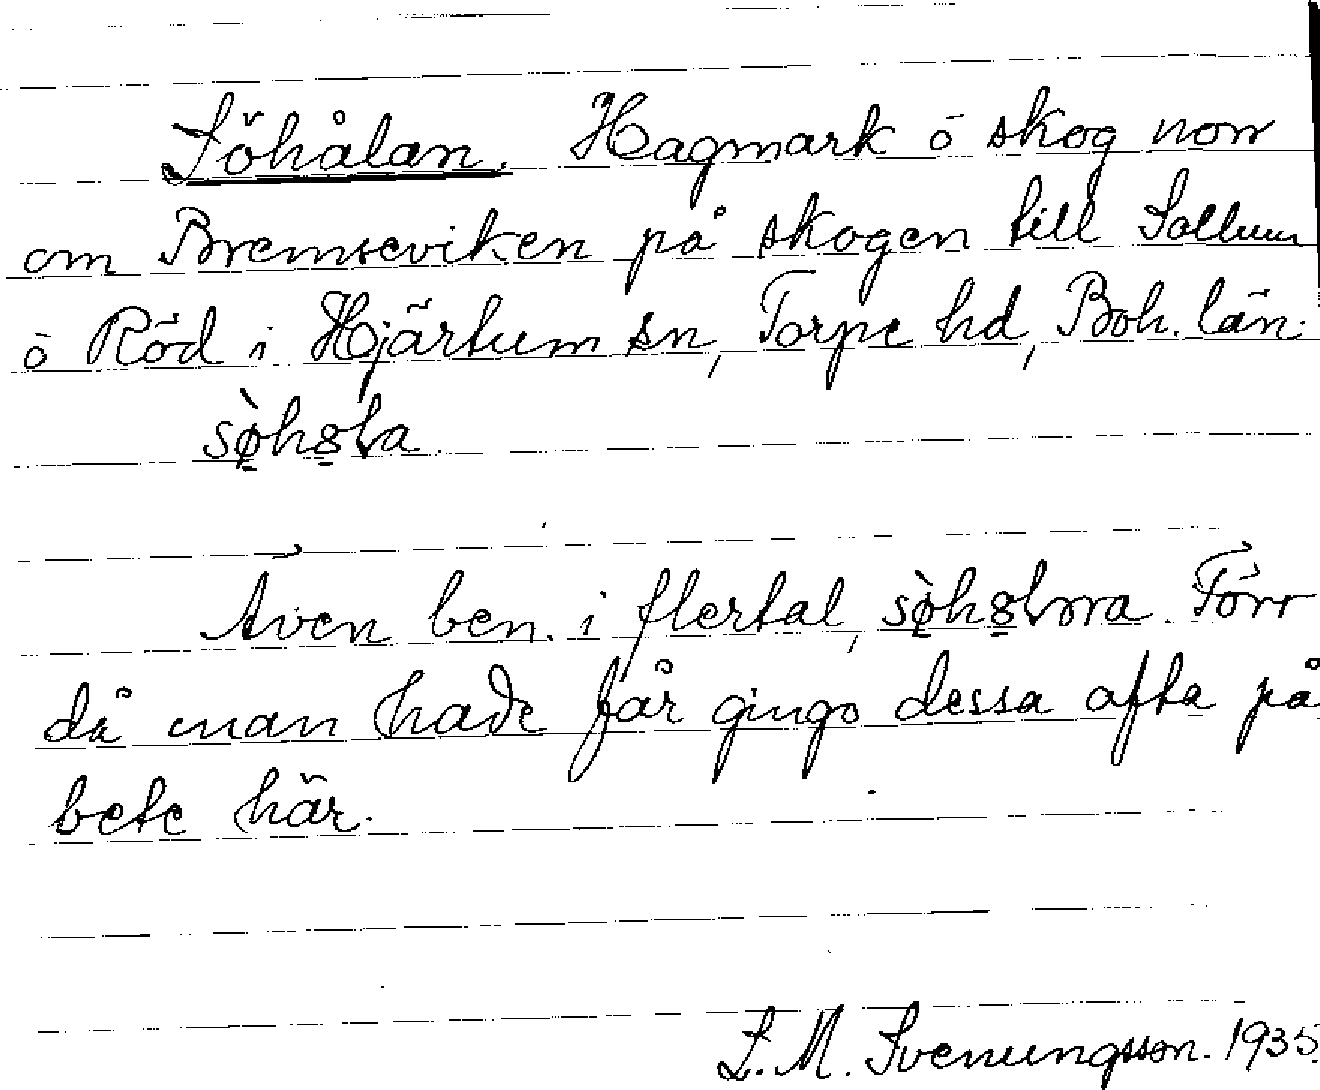 Söhålan. Hagmark ó skog norr
om Bremseviken på skogen till Sollum
ó Röd i Hjärtum sn, Torpe hd, Boh. län.
sø̀hꝏla
Även ben. i flertal, Förr
då man hade får gingo dessa ofta på
bete här.
S. M. Svenungsson. 1935.